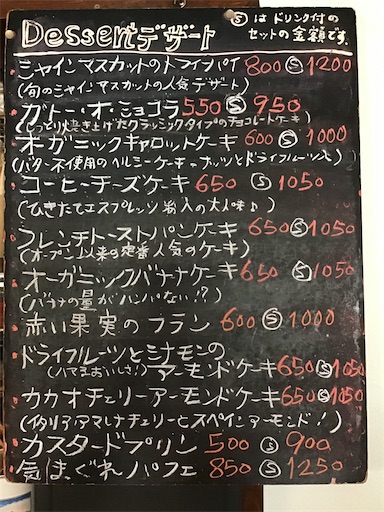 Dessert デザート
Ⓢはドリンク付の
セットの金額です。
シャインマスカットのトライフルパイ 800 Ⓢ 1200
(旬のシャインマスカットの人気デザート)
ガトー・オ・ショコラ 550 Ⓢ 950
(しっとり焼き上げたクラシックタイプのチョコレートケーキ)
オーガニックキャロットケーキ 600 Ⓢ 1000
(バター不使用のヘルシーケーキ ナッツとドライフルーツ入)
コーヒーチーズケーキ 650 Ⓢ 1050
(ひきたてエスプレッソ粉入の大人味♪)
フレンチトーストパンケーキ 650 Ⓢ 1050
(オープン以来の定番人気のケーキ)
オーガニックバナナケーキ 650 Ⓢ 1050
(バナナの量がハンパない!?)
赤い果実のフラン 600 Ⓢ 1000
ドライフルーツとシナモンの
(ハマるおいしさ!) アーモンドケーキ 650 Ⓢ 1050
カカオチェリーアーモンドケーキ 650 Ⓢ 1050
(イタリアアマレナチェリーとスペインアーモンド!)
カスタードプリン 500 Ⓢ 900
気まぐれパフェ 850 Ⓢ 1250